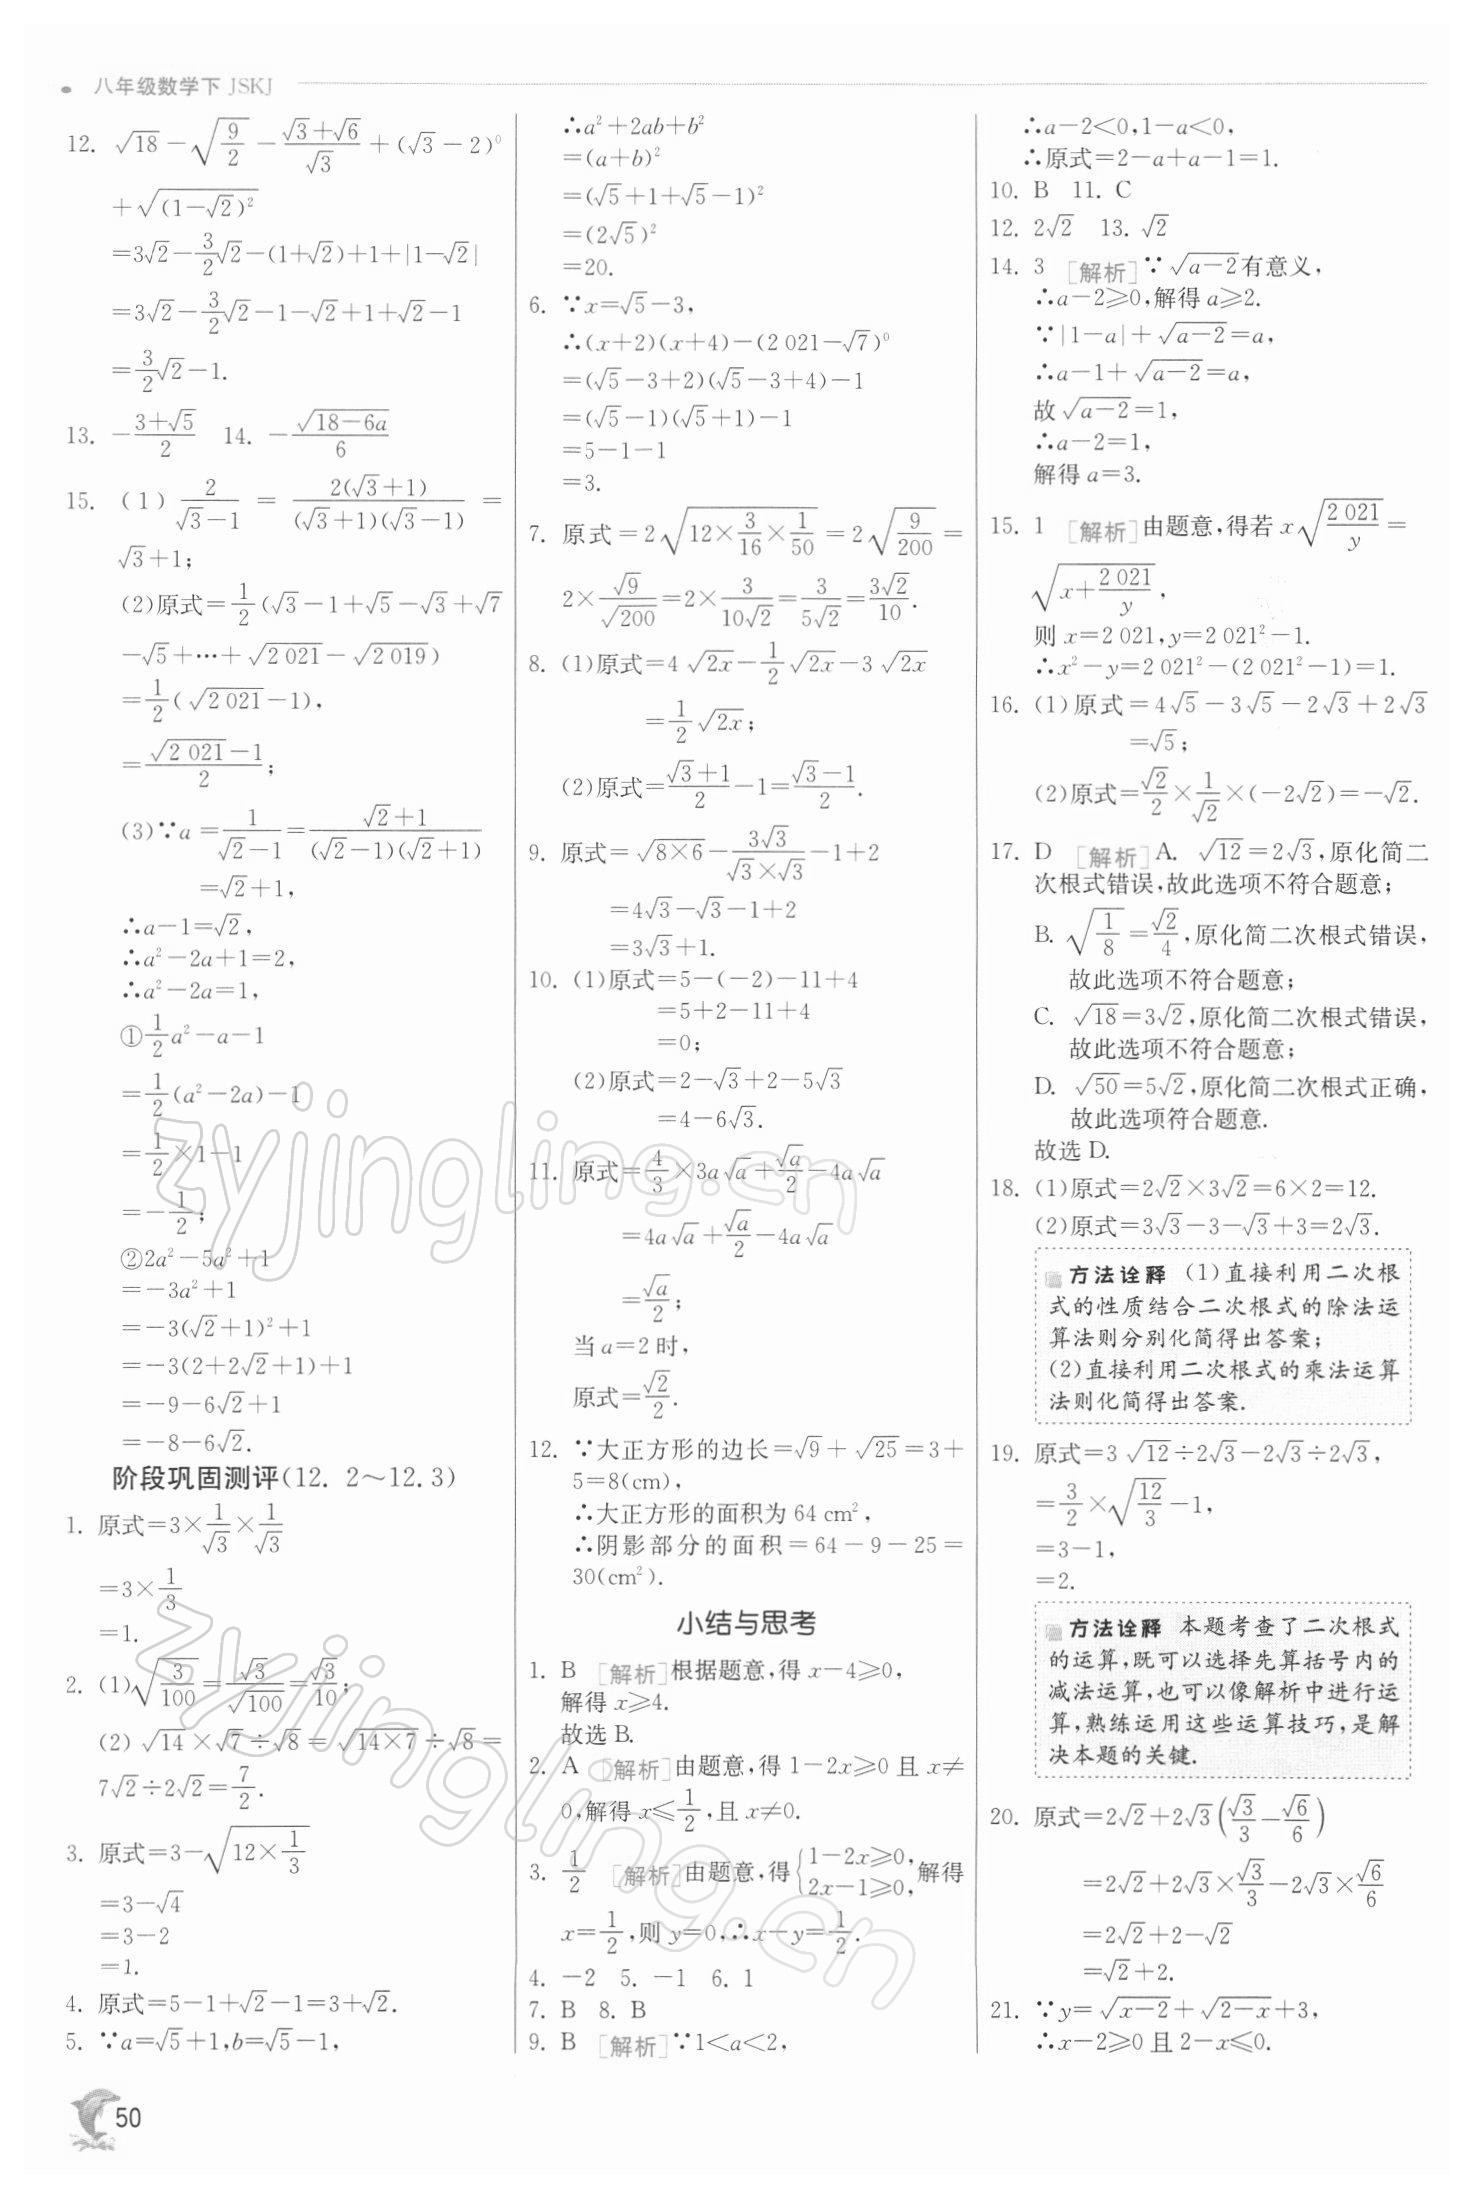 八年级数学下 JSKJ
12. √18－√(9/2)－(√3＋√6)/√3＋(√3－2)⁰
＋√((1－√2)²)
＝3√2－(3/2)√2－(1＋√2)＋1＋|1－√2|
＝3√2－(3/2)√2－1－√2＋1＋√2－1
＝(3/2)√2－1.
13. －(3＋√5)/2 14. －√(18－6a)/6
15. (1) 2/(√3－1) ＝ 2(√3＋1)/((√3＋1)(√3－1)) ＝
√3＋1;
(2)原式＝(1/2)(√3－1＋√5－√3＋√7
－√5＋…＋√(2 021)－√(2 019))
＝(1/2)(√(2 021)－1),
＝(√(2 021)－1)/2;
(3)∵a＝1/(√2－1)＝(√2＋1)/((√2－1)(√2＋1))
＝√2＋1,
∴a－1＝√2,
∴a²－2a＋1＝2,
∴a²－2a＝1,
①(1/2)a²－a－1
＝(1/2)(a²－2a)－1
＝(1/2)×1－1
＝－1/2;
②2a²－5a²＋1
＝－3a²＋1
＝－3(√2＋1)²＋1
＝－3(2＋2√2＋1)＋1
＝－9－6√2＋1
＝－8－6√2.
阶段巩固测评(12. 2～12. 3)
1. 原式＝3×(1/√3)×(1/√3)
＝3×(1/3)
＝1.
2. (1)√(3/100)＝√3/√100＝√3/10;
(2) √14×√7÷√8＝√(14×7)÷√8＝
7√2÷2√2＝7/2.
3. 原式＝3－√(12×(1/3))
＝3－√4
＝3－2
＝1.
4. 原式＝5－1＋√2－1＝3＋√2.
5. ∵a＝√5＋1,b＝√5－1,
∴a²＋2ab＋b²
＝(a＋b)²
＝(√5＋1＋√5－1)²
＝(2√5)²
＝20.
6. ∵x＝√5－3,
∴(x＋2)(x＋4)－(2 021－√7)⁰
＝(√5－3＋2)(√5－3＋4)－1
＝(√5－1)(√5＋1)－1
＝5－1－1
＝3.
7. 原式＝2√(12×(3/16)×(1/50))＝2√(9/200)＝
2×√9/√200＝2×3/(10√2)＝3/(5√2)＝3√2/10.
8. (1)原式＝4√(2x)－(1/2)√(2x)－3√(2x)
＝(1/2)√(2x);
(2)原式＝(√3＋1)/2－1＝(√3－1)/2.
9. 原式＝√(8×6)－3√3/(√3×√3)－1＋2
＝4√3－√3－1＋2
＝3√3＋1.
10. (1)原式＝5－(－2)－11＋4
＝5＋2－11＋4
＝0;
(2)原式＝2－√3＋2－5√3
＝4－6√3.
11. 原式＝(4/3)×3a√a＋√a/2－4a√a
＝4a√a＋√a/2－4a√a
＝√a/2;
当a＝2时,
原式＝√2/2.
12. ∵大正方形的边长＝√9＋√25＝3＋
5＝8(cm),
∴大正方形的面积为64 cm²,
∴阴影部分的面积＝64－9－25＝
30(cm²).
小结与思考
1. B [解析]根据题意,得x－4⩾0,
解得x⩾4.
故选B.
2. A [解析]由题意,得1－2x⩾0且x≠
0,解得x⩽1/2,且x≠0.
3. 1/2 [解析]由题意,得{1－2x⩾0, 2x－1⩾0,解得
x＝1/2,则y＝0,∴x－y＝1/2.
4. －2 5. －1 6. 1
7. B 8. B
9. B [解析]∵1＜a＜2,
∴a－2＜0,1－a＜0,
∴原式＝2－a＋a－1＝1.
10. B 11. C
12. 2√2 13. √2
14. 3 [解析]∵√(a－2)有意义,
∴a－2⩾0,解得a⩾2.
∵|1－a|＋√(a－2)＝a,
∴a－1＋√(a－2)＝a,
故√(a－2)＝1,
∴a－2＝1,
解得a＝3.
15. 1 [解析]由题意,得若x√(2 021/y)＝
√(x＋2 021/y),
则x＝2 021,y＝2 021²－1.
∴x²－y＝2 021²－(2 021²－1)＝1.
16. (1)原式＝4√5－3√5－2√3＋2√3
＝√5;
(2)原式＝(√2/2)×(1/√2)×(－2√2)＝－√2.
17. D [解析]A. √12＝2√3,原化简二
次根式错误,故此选项不符合题意;
B. √(1/8)＝√2/4,原化简二次根式错误,
故此选项不符合题意;
C. √18＝3√2,原化简二次根式错误,
故此选项不符合题意;
D. √50＝5√2,原化简二次根式正确,
故此选项符合题意.
故选D.
18. (1)原式＝2√2×3√2＝6×2＝12.
(2)原式＝3√3－3－√3＋3＝2√3.
方法诠释 (1)直接利用二次根
式的性质结合二次根式的除法运
算法则分别化简得出答案;
(2)直接利用二次根式的乘法运算
法则化简得出答案.
19. 原式＝3√12÷2√3－2√3÷2√3,
＝(3/2)×√(12/3)－1,
＝3－1,
＝2.
方法诠释 本题考查了二次根式
的运算,既可以选择先算括号内的
减法运算,也可以像解析中进行运
算,熟练运用这些运算技巧,是解
决本题的关键.
20. 原式＝2√2＋2√3(√3/3－√6/6)
＝2√2＋2√3×√3/3－2√3×√6/6
＝2√2＋2－√2
＝√2＋2.
21. ∵y＝√(x－2)＋√(2－x)＋3,
∴x－2⩾0且2－x⩽0.
50
zyjingling.cn
zyjingling.cn